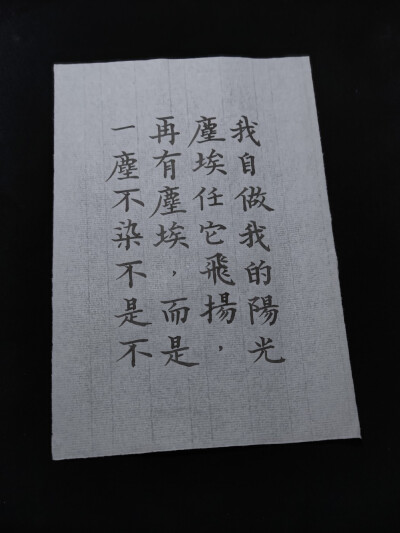 一塵不染不是不
再有塵埃，而是
塵埃任它飛揚，
我自做我的陽光